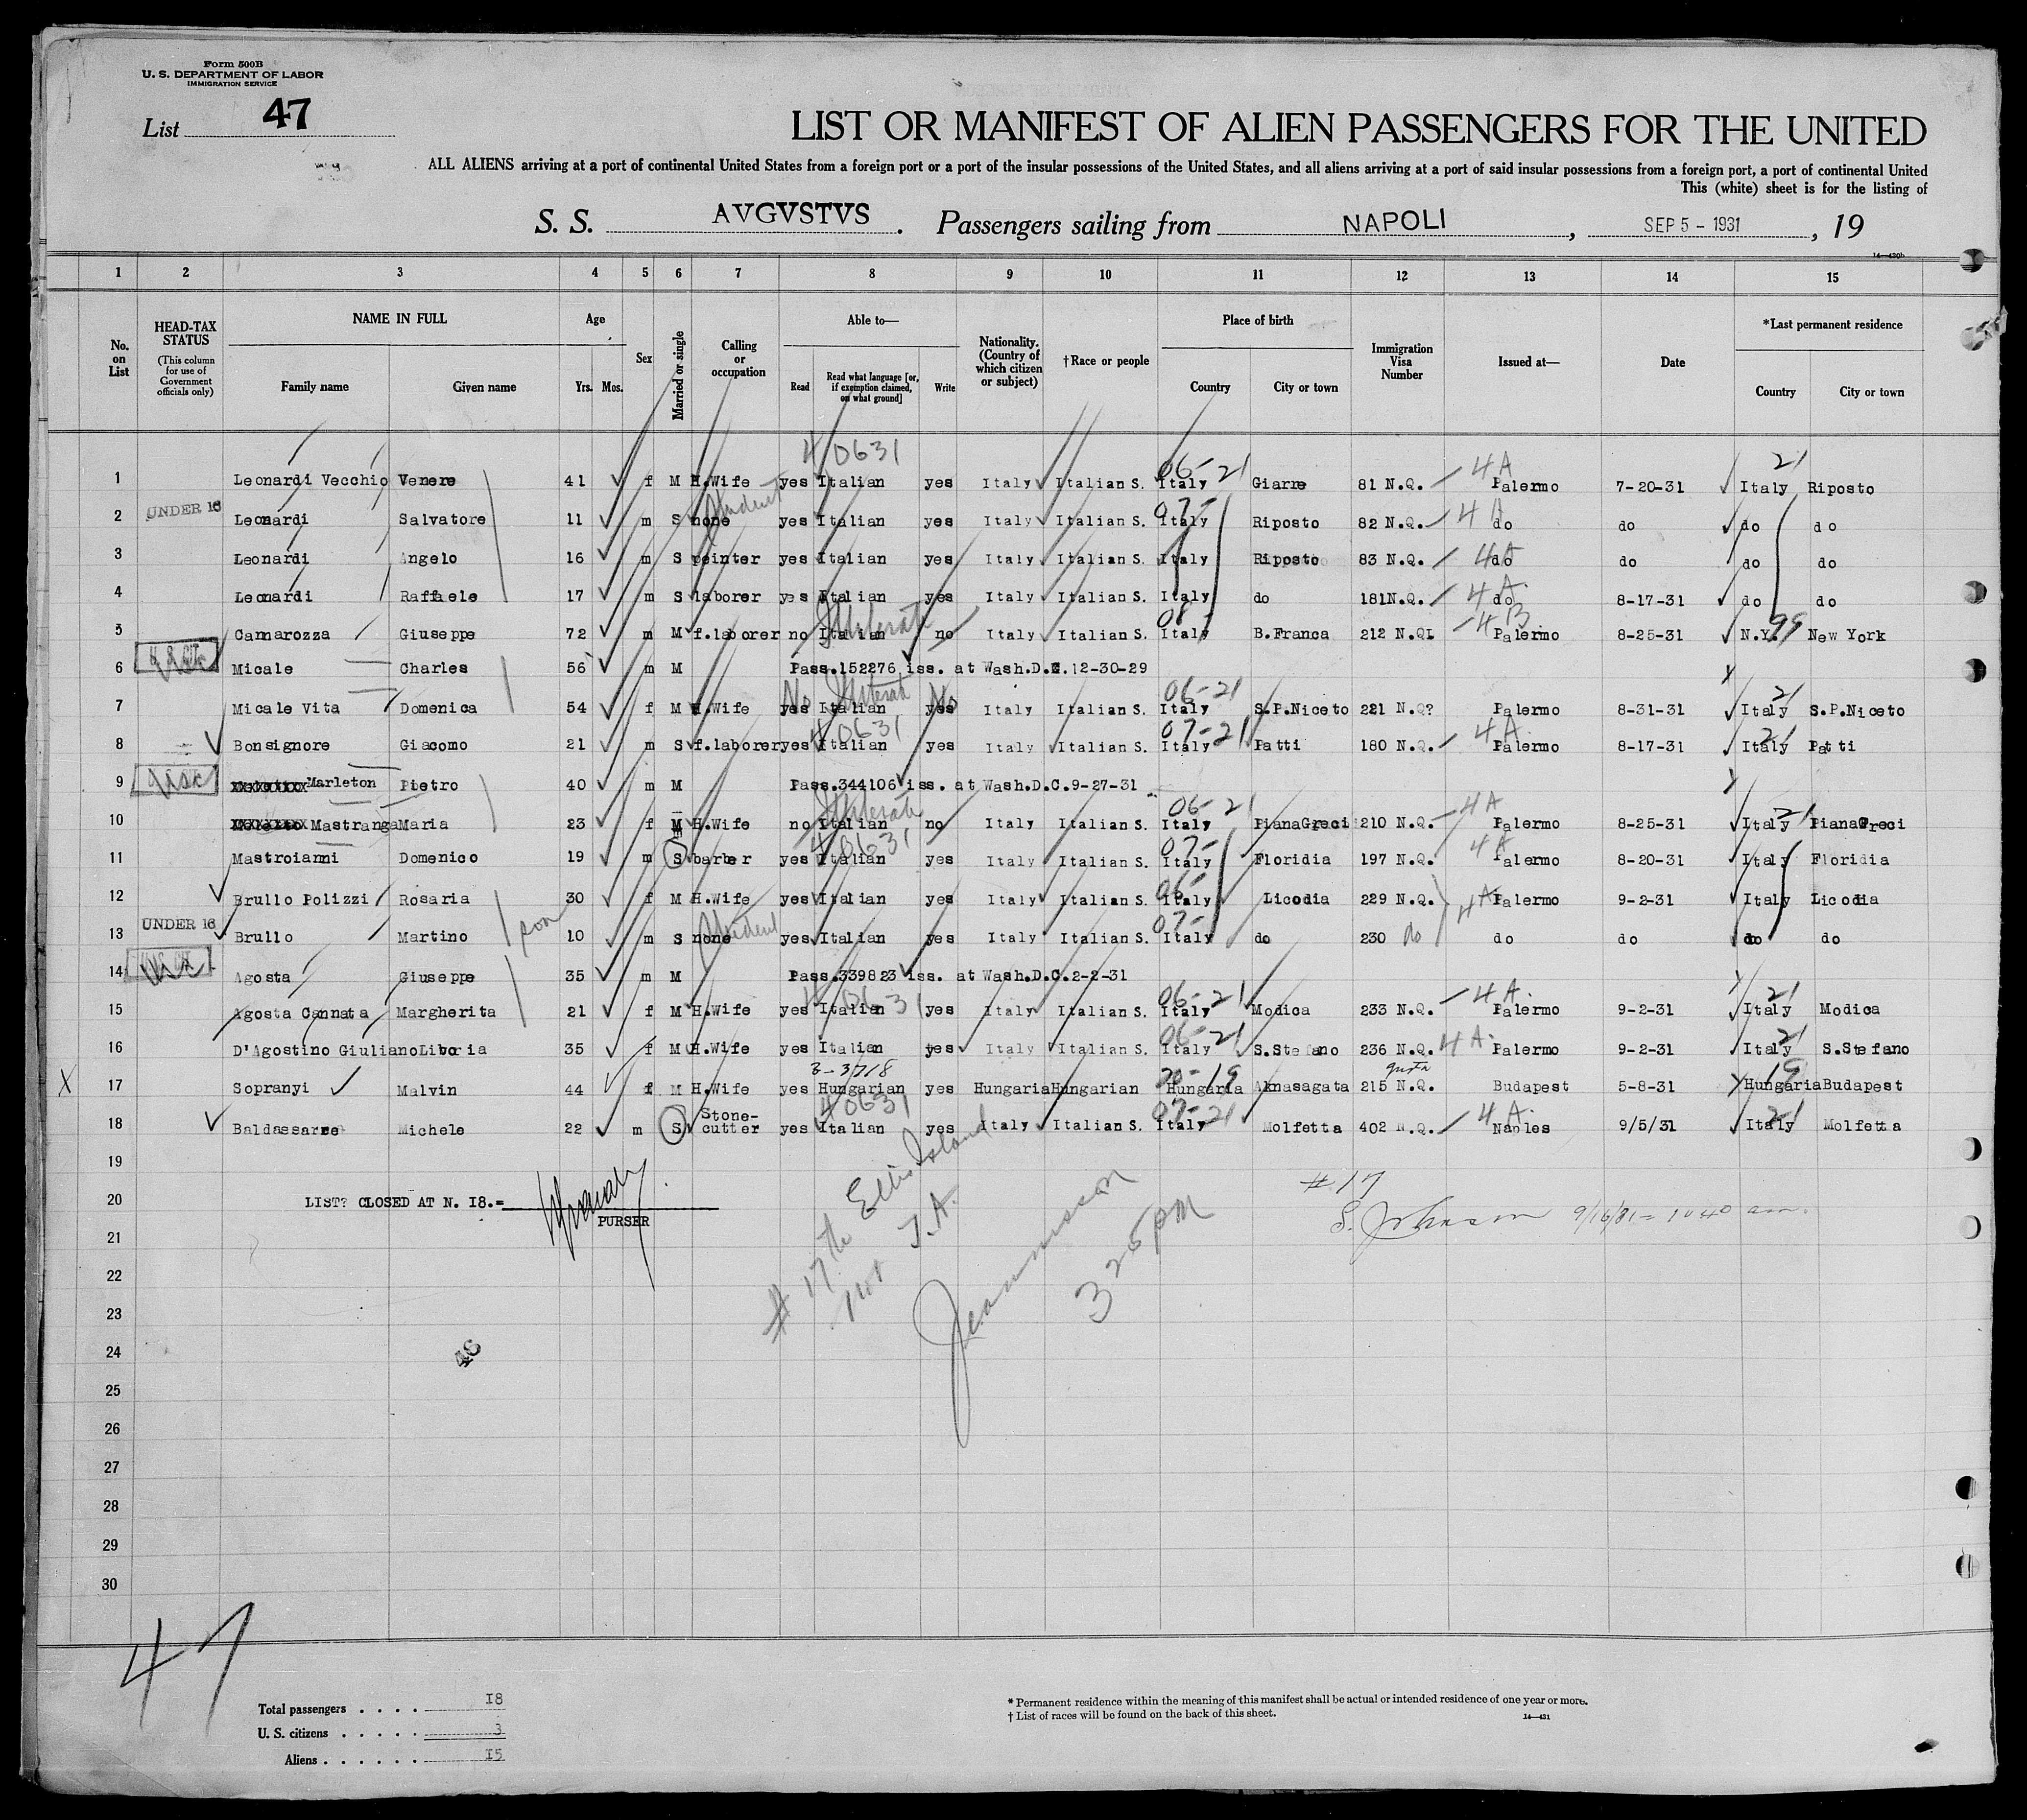 Form 500B
U. S. DEPARTMENT OF LABOR
IMMIGRATION SERVICE
List 47
LIST OR MANIFEST OF ALIEN PASSENGERS FOR THE UNITED
ALL ALIENS arriving at a port of continental United States from a foreign port or a port of the insular possessions of the United States, and all aliens arriving at a port of said insular possessions from a foreign port, a port of continental United
This (white) sheet is for the listing of
S. S. AVGVSTVS. Passengers sailing from NAPOLI, SEP 5 - 1931, 19
14—430b
1 2 3 4 5 6 7 8 9 10 11 12 13 14 15
No. on List
HEAD-TAX STATUS
(This column for use of Government officials only)
NAME IN FULL
Family name Given name
Age
Yrs. Mos.
Sex
Married or single
Calling or occupation
Able to—
Read Read what language [or, if exemption claimed, on what ground] Write
Nationality. (Country of which citizen or subject)
†Race or people
Place of birth
Country City or town
Immigration Visa Number
Issued at—
Date
*Last permanent residence
Country City or town
40631 06-21 4A 21
1 Leonardi Vecchio Venere 41 f M H.Wife yes Italian yes Italy Italian S. Italy Giarre 81 N.Q. Palermo 7-20-31 Italy Riposto
UNDER 16 Student 07- 4A
2 Leonardi Salvatore 11 m S none yes Italian yes Italy Italian S. Italy Riposto 82 N.Q. do do do do
3 Leonardi Angelo 16 m S peinter yes Italian yes Italy Italian S. Italy Riposto 83 N.Q. 4A do do do do
4 Leonardi Raffaele 17 m S laborer yes Italian yes Italy Italian S. Italy do 181N.Q. 4A do 8-17-31 do do
Illiterate 08 4B 99
5 Camarozza Giuseppe 72 m M f.laborer no Italian no Italy Italian S. Italy B.Franca 212 N.QI Palermo 8-25-31 N.Y. New York
6 Micale Charles 56 m M Pass.152276 iss. at Wash.D.C.12-30-29
No Illiterate No 06-21 21
7 Micale Vita Domenica 54 f M H.Wife yes Italian yes Italy Italian S. Italy S.P.Niceto 221 N.Q? Palermo 8-31-31 Italy S.P.Niceto
40631 07-21 4A 21
8 Bonsignore Giacomo 21 m S f.laborer yes Italian yes Italy Italian S. Italy Patti 180 N.Q. Palermo 8-17-31 Italy Patti
9 Marleton Pietro 40 m M Pass.344106 iss. at Wash.D.C.9-27-31
Illiterate 06-21 4A 21
10 Mastranga Maria 23 f M H.Wife no Italian no Italy Italian S. Italy PianaGreci 210 N.Q. Palermo 8-25-31 Italy PianaGreci
40631 07- 4A
11 Mastroianni Domenico 19 m S barber yes Italian yes Italy Italian S. Italy Floridia 197 N.Q. Palermo 8-20-31 Italy Floridia
06-
12 Brullo Polizzi Rosaria 30 f M H.Wife yes Italian yes Italy Italian S. Italy Licodia 229 N.Q. 4A Palermo 9-2-31 Italy Licodia
UNDER 16 son Student 07-
13 Brullo Martino 10 m S none yes Italian yes Italy Italian S. Italy do 230 do do do do do
14 Agosta Giuseppe 35 m M Pass.339823 iss. at Wash.D.C.2-2-31
40631 06-21 4A. 21
15 Agosta Cannata Margherita 21 f M H.Wife yes Italian yes Italy Italian S. Italy Modica 233 N.Q. Palermo 9-2-31 Italy Modica
06-21 4A. 21
16 D'Agostino Giuliano Liboria 35 f M H.Wife yes Italian yes Italy Italian S. Italy S.Stefano 236 N.Q. Palermo 9-2-31 Italy S.Stefano
3-3718 20-19 19
X 17 Sopranyi Malvin 44 f M H.Wife yes Hungarian yes Hungaria Hungarian Hungaria Aknasagata 215 N.Q. Budapest 5-8-31 Hungaria Budapest
40631 07-21 4A. 21
18 Baldassarre Michele 22 m S Stone-cutter yes Italian yes Italy Italian S. Italy Molfetta 402 N.Q. Naples 9/5/31 Italy Molfetta
19
20 LIST? CLOSED AT N. I8.=
PURSER
#17th Ellis Island
T.A.
3 25 PM
#17
S. Johnson 9/16/31 = 1040 am.
21
22
23
24
46
25
26
27
28
29
30
47
Total passengers . . . . I8
U. S. citizens . . . . . 3
Aliens . . . . . . I5
* Permanent residence within the meaning of this manifest shall be actual or intended residence of one year or more.
† List of races will be found on the back of this sheet.
14—431